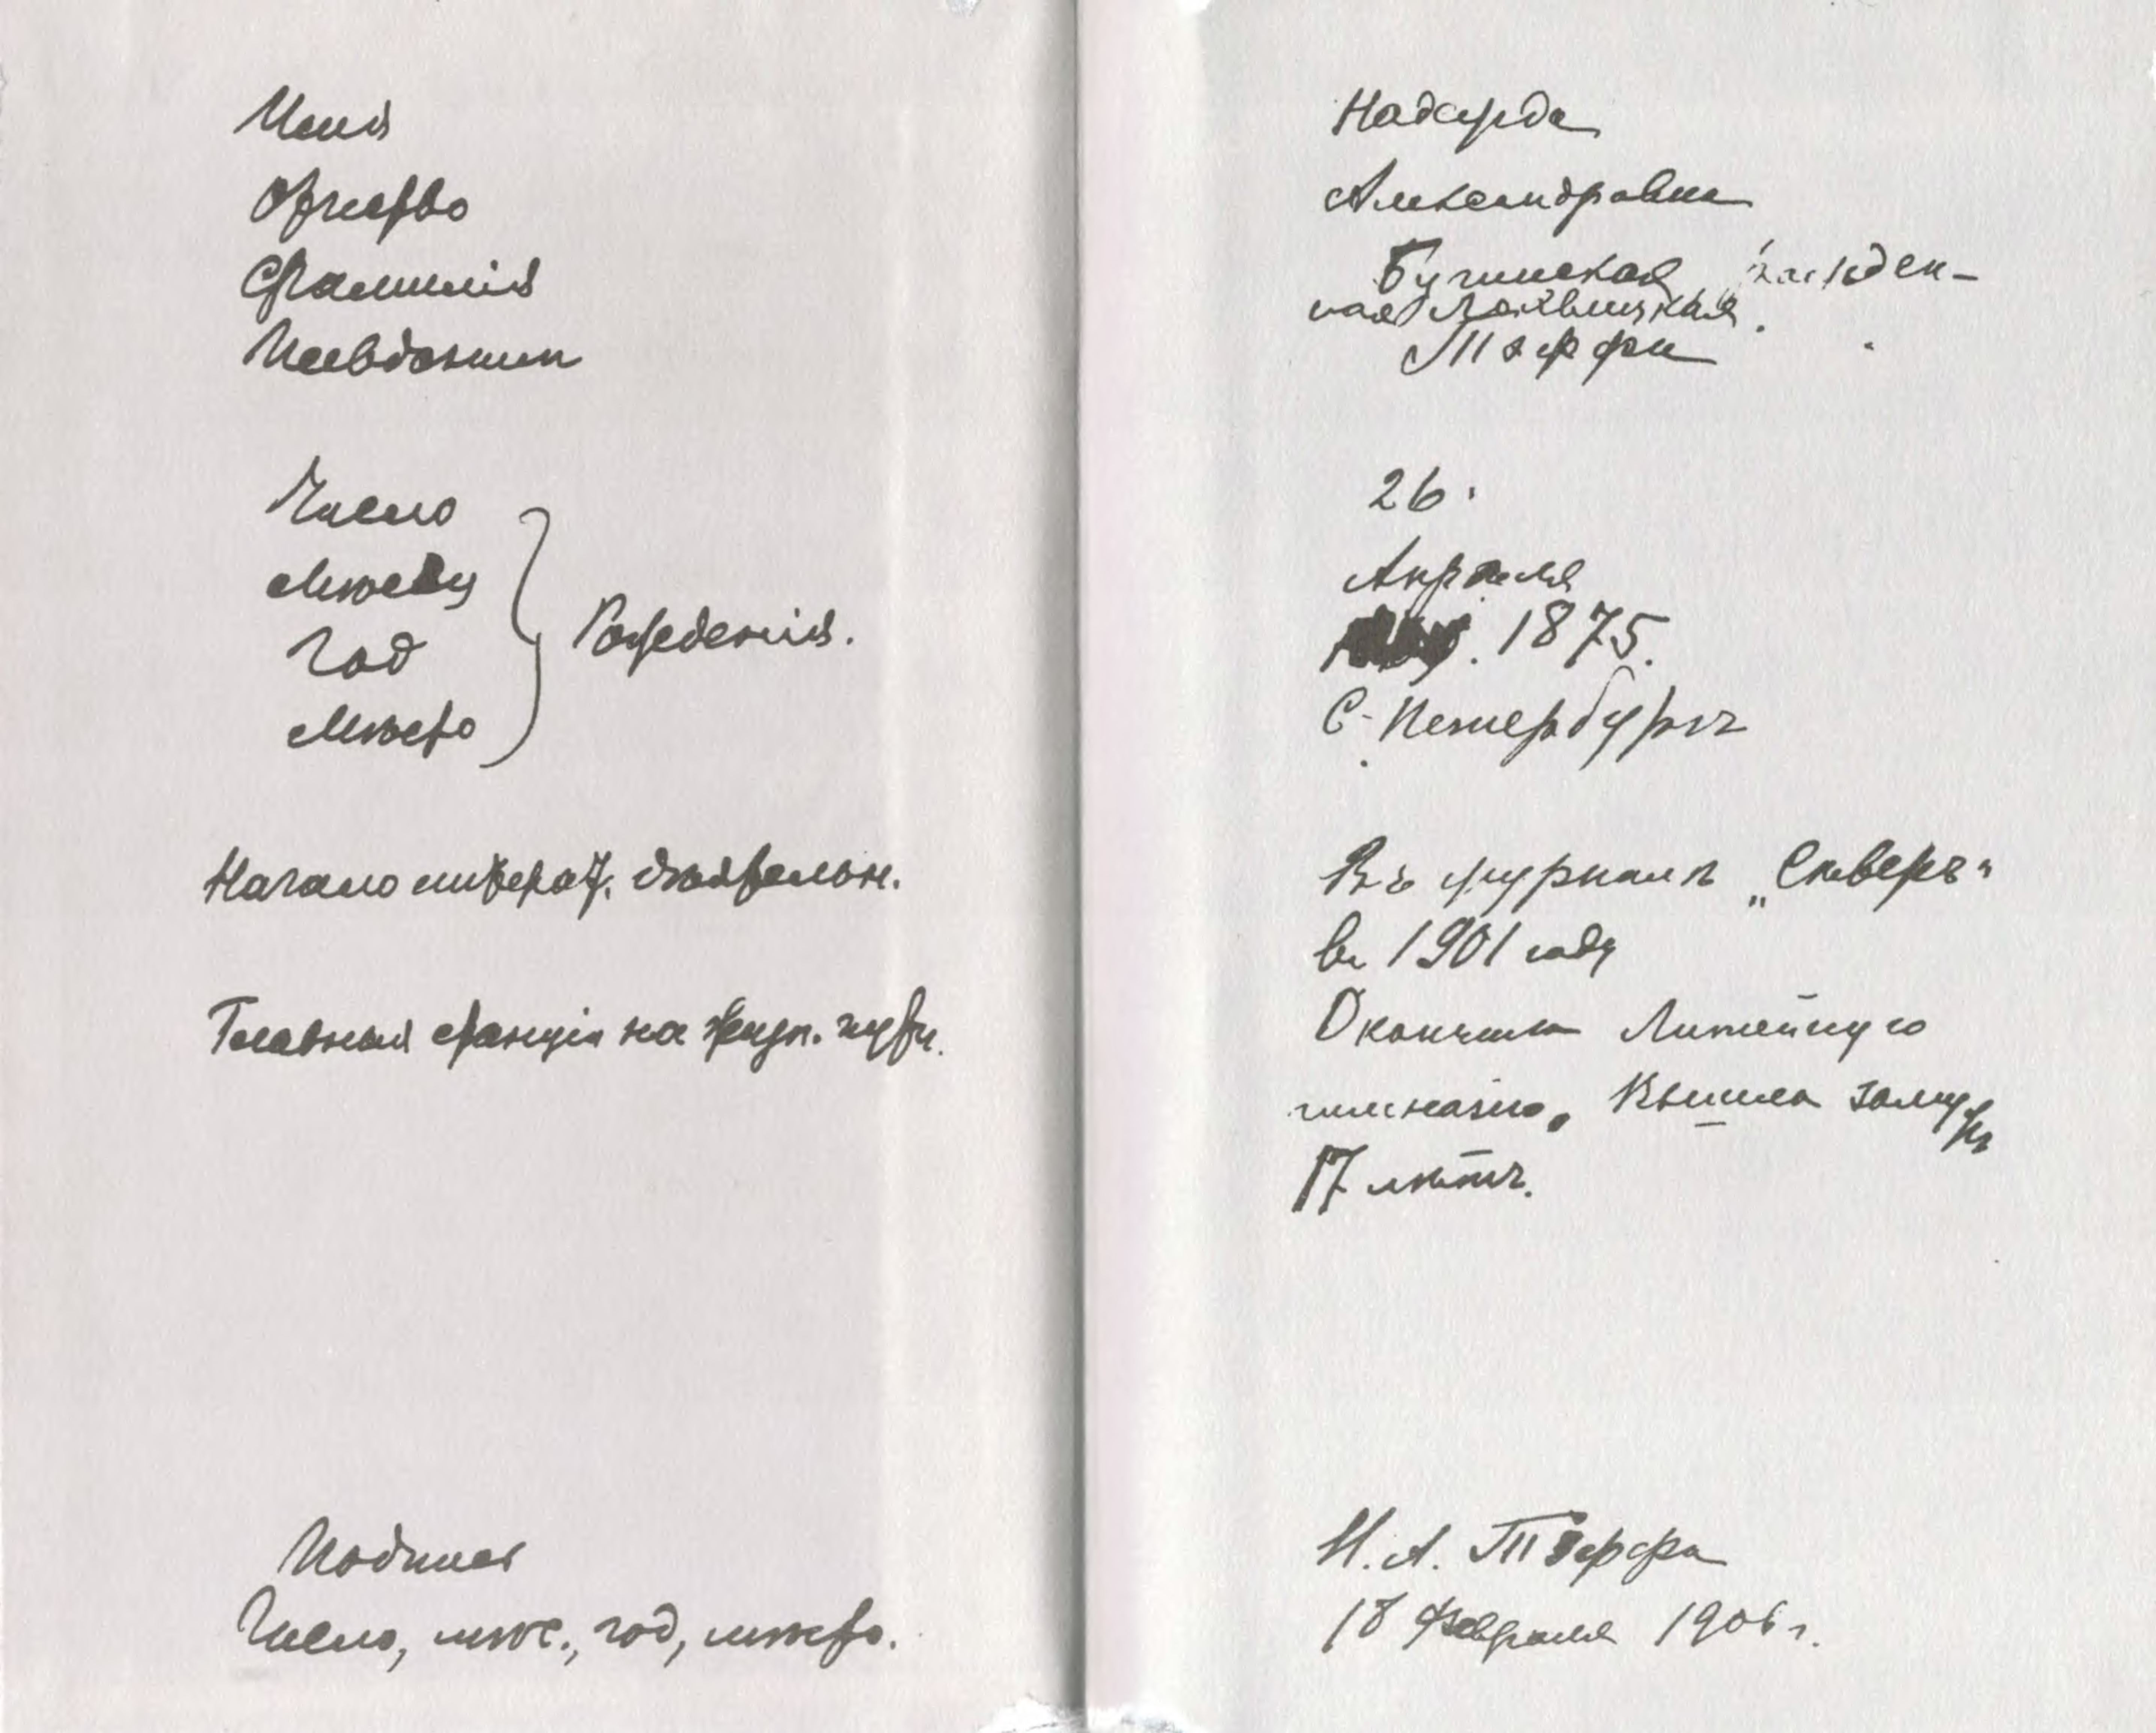 Имя
Отчество
Фамилия
Псевдоним
Число
Мѣсяц
Год
Мѣсто
Рождения.
Начало литерат. дѣятельн.
Главныя станціи на жизн. пути.
Подпись
Число, мѣс., год, мѣсто.
Надежда
Александровна
Бучинская рожден-
ная Лохвицкая.
Тэффи
26.
Апрѣля
1875.
С-Петербургъ
Въ журналѣ „Сѣверъ“
въ 1901 году
Окончила Литейную
гимназію. Вышла замужъ
17 лѣтъ.
Н. А. Тэффи
18 Февраля 1906 г.